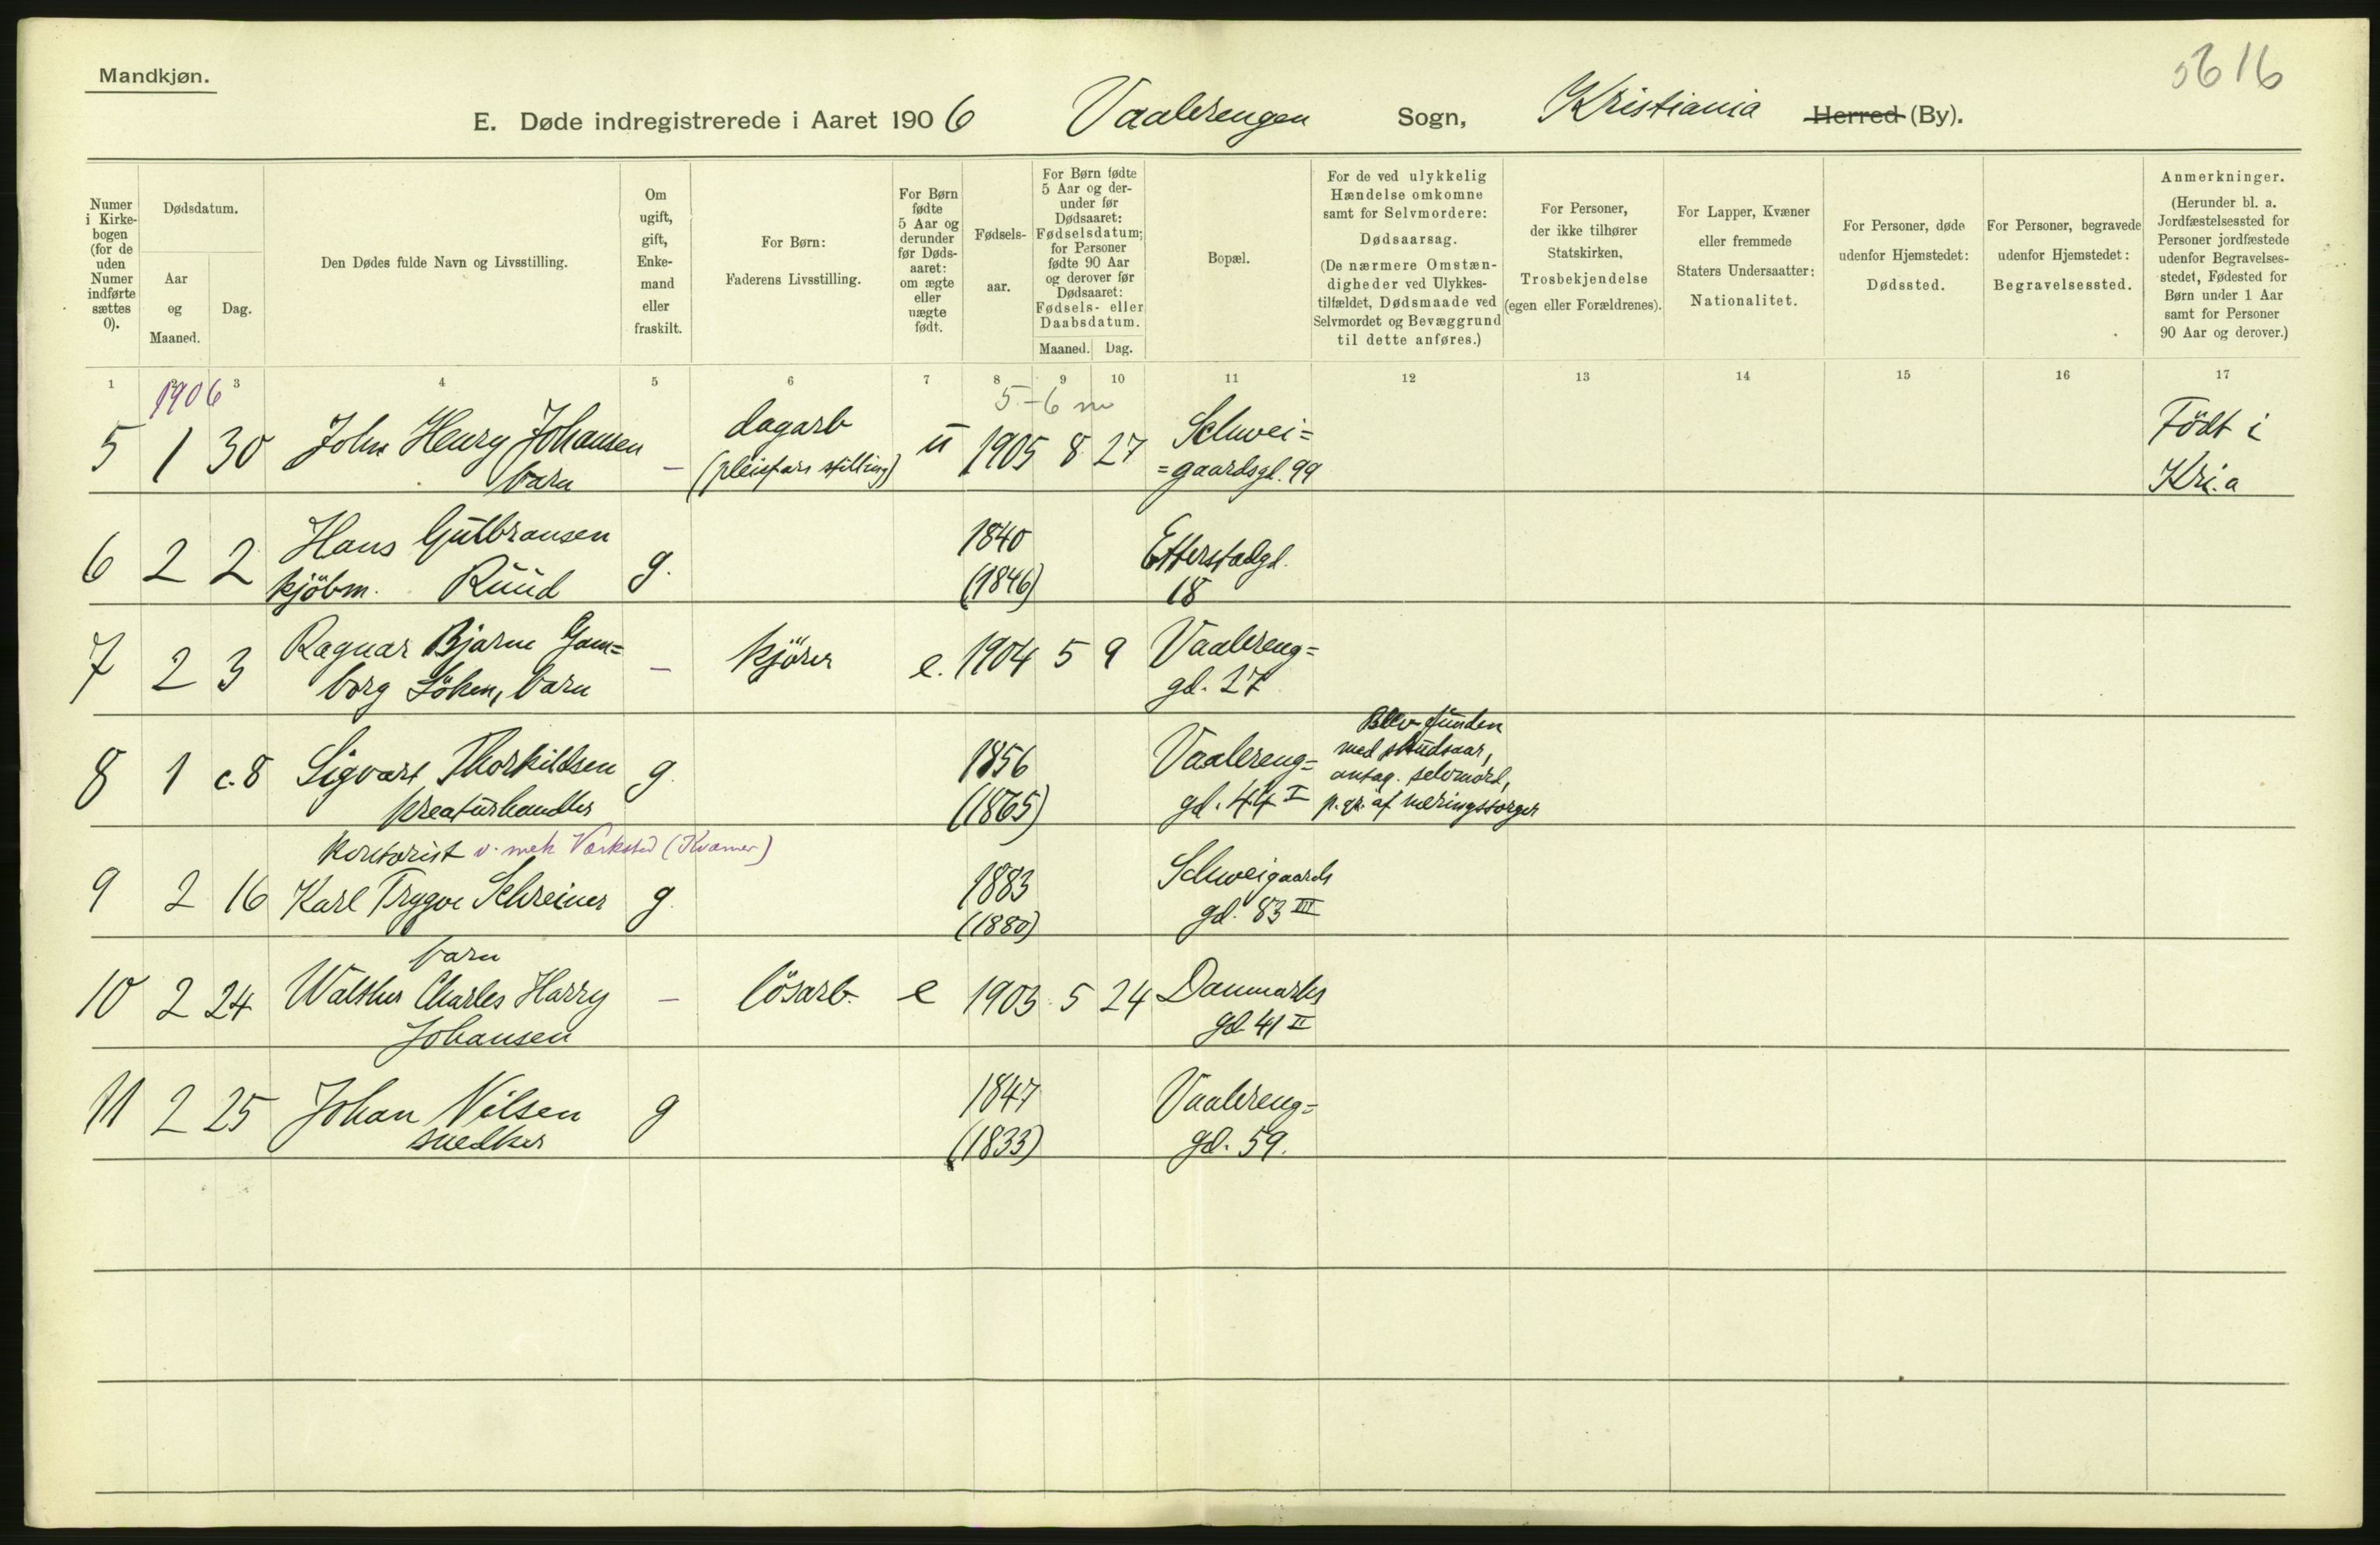 Mandkjøn.
5616
E. Døde indregistrerede i Aaret 1906 Vaalerengen Sogn, Kristiania Herred (By).
Numer i Kirkebogen (for de uden Numer indførte sættes 0).
Dødsdatum.
Aar og Maaned.
Dag.
Den Dødes fulde Navn og Livsstilling.
Om ugift, gift, Enkemand eller fraskilt.
For Børn: Faderens Livsstilling.
For Børn fødte 5 Aar og derunder før Dødsaaret: om ægte eller uægte født.
Fødselsaar.
For Børn fødte 5 Aar og derunder før Dødsaaret: Fødselsdatum; for Personer fødte 90 Aar og derover før Dødsaaret: Fødsels- eller Daabsdatum.
Maaned. Dag.
Bopæl.
For de ved ulykkelig Hændelse omkomne samt for Selvmordere: Dødsaarsag. (De nærmere Omstændigheder ved Ulykkestilfældet, Dødsmaade ved Selvmordet og Bevæggrund til dette anføres.)
For Personer, der ikke tilhører Statskirken, Trosbekjendelse (egen eller Forældrenes).
For Lapper, Kvæner eller fremmede Staters Undersaatter: Nationalitet.
For Personer, døde udenfor Hjemstedet: Dødssted.
For Personer, begravede udenfor Hjemstedet: Begravelsessted.
Anmerkninger. (Herunder bl. a. Jordfæstelsessted for Personer jordfæstede udenfor Begravelsesstedet, Fødested for Børn under 1 Aar samt for Personer 90 Aar og derover.)
1 2 3 4 5 6 7 8 9 10 11 12 13 14 15 16 17
1906
5-6 m
5 1 30 John Henry Johansen barn - dagarb (pleiefars stilling) u 1905 8 27 Schwei= =gaardsgd. 99 Født i Kri.a
6 2 2 Hans Gulbransen kjøbm. Ruud g. 1840 (1846) Etterstadgd. 18
7 2 3 Ragnar Bjarne Gam= borg Løken, barn - kjører e. 1904 5 9 Vaalereng= gd. 27
8 1 c.8 Sigvart Thorkildsen kreaturhandler g. 1856 (1865) Vaalereng= gd. 44 I Blev funden med skudsaar, antag. selvmord, p. gr. af næringssorger
9 2 16 kontorist v. mek Værksted (Kværner) Karl Trygve Schreiner g. 1883 (1880) Schweigaards gd. 83 III
10 2 24 barn Walther Charles Harry Johansen - løsarb. e 1903 5 24 Danmarks gd. 41 II
11 2 25 Johan Nilsen snedker g 1847 (1833) Vaalereng= gd. 59.